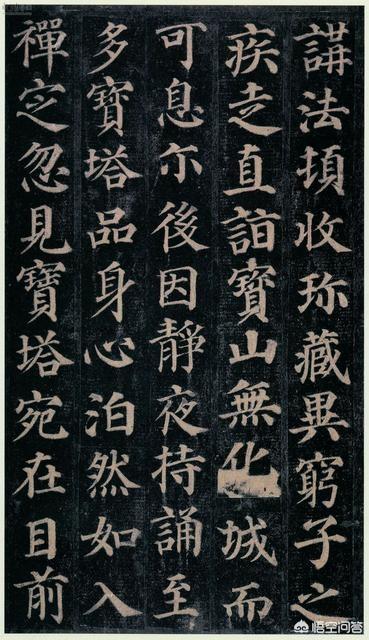 講法頓收珎藏異窮子之
疾走直詣寶山無化城而
可息尒後因靜夜持誦至
多寶塔品身心泊然如入
禪㝎忽見寶塔宛在目前
悟空问答